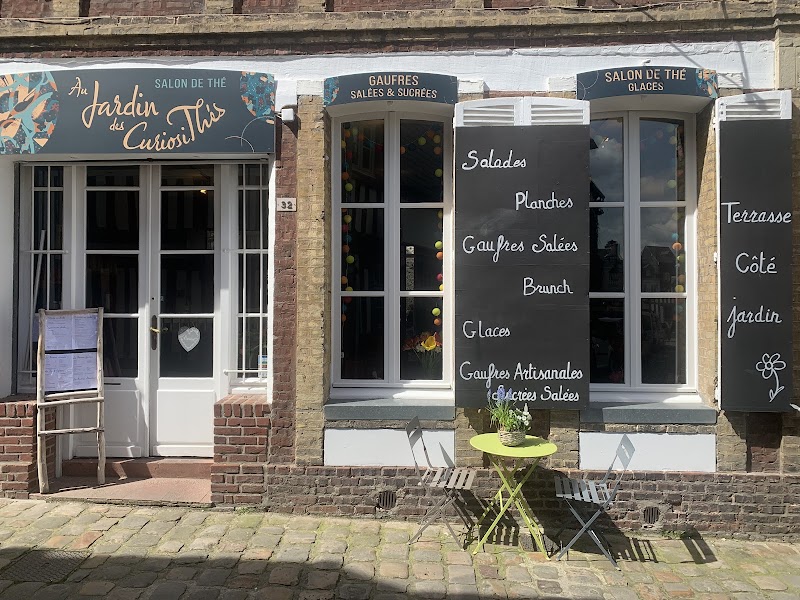 SALON DE THÉ
Au
Jardin
des
CuriosiThis
32
GAUFRES
SALÉES & SUCRÉES
SALON DE THÉ
GLACES
Salades
Planches
Gaufres Salées
Brunch
Glaces
Gaufres Artisanales
Sucrées Salées
Terrasse
Côté
jardin